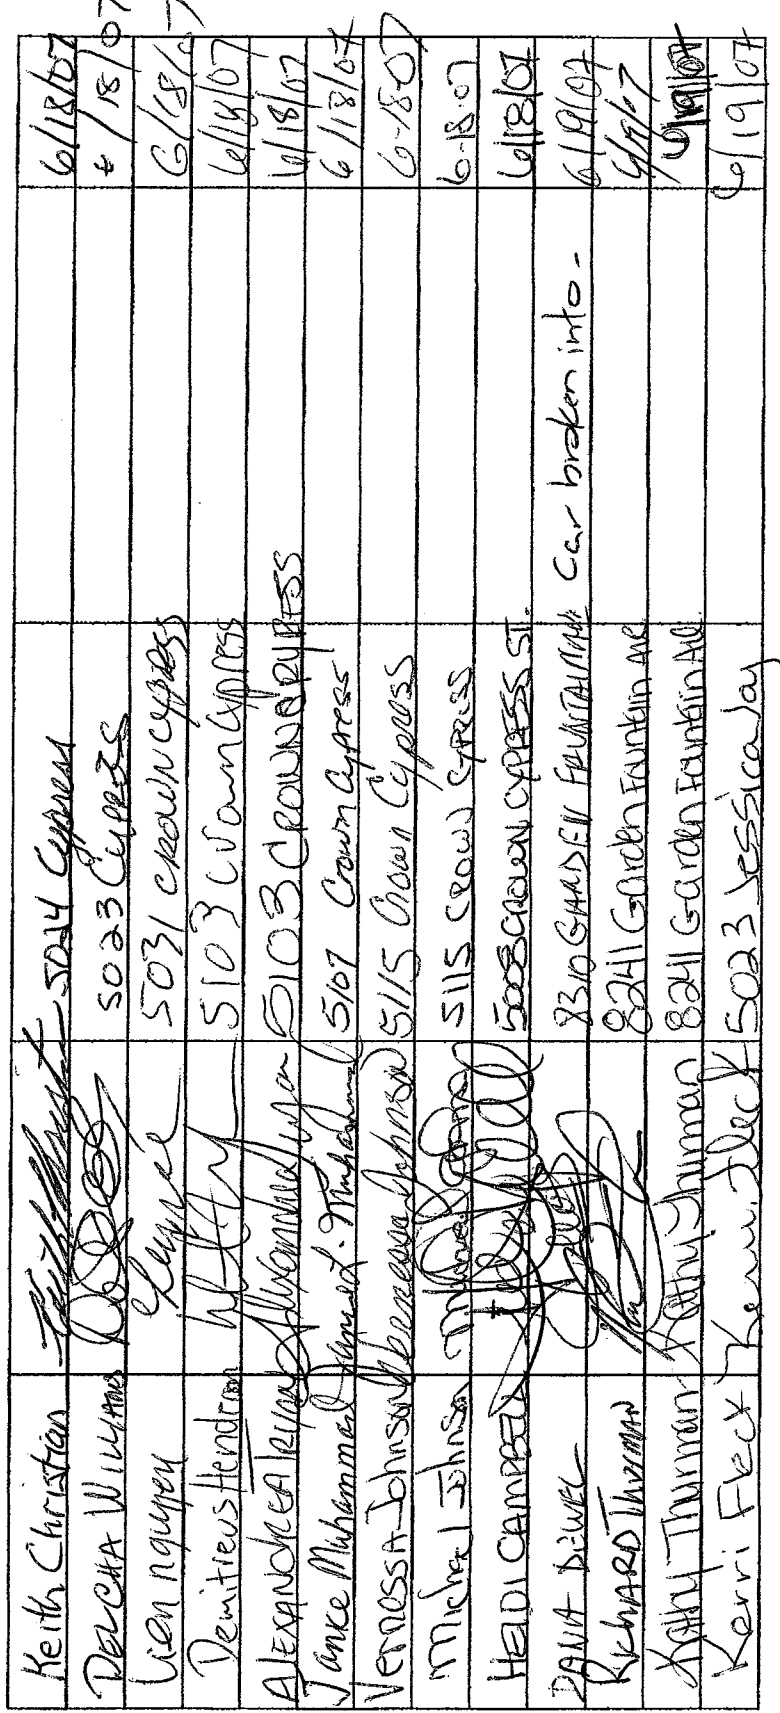 Keith Christian 5024 Cypress 6/18/07
DELCHA Williams 5023 Cypress 6/18/07
Lien nguyen 5031 crown cypress 6/18/07
Demitreus Hendron 5103 Crown Cypress 6/18/07
ALEXANDREA 5103 CROWN CYPRESS 6/18/07
Janice Muhammad Janice L. Muhammad 5107 Crown Cypress 6/18/07
Vernessa Johnson Vernessa Johnson 5115 Crown Cypress 6-18-07
Michael Johnson 5115 CROWN CYPRESS 6-18-07
HEIDI CAMPBELL 5008 CROWN CYPRESS ST. 6/18/07
DANA 8310 GARDEN FOUNTAIN Car broken into - 6/19/07
RICHARD Thurman 8241 Garden Fountain Ave 6/19/07
Kathy Thurman Kathy Thurman 8241 Garden Fountain Ave. 6/19/07
Kerri Fleck Kerri Fleck 5023 Jessica Joy 6/19/07